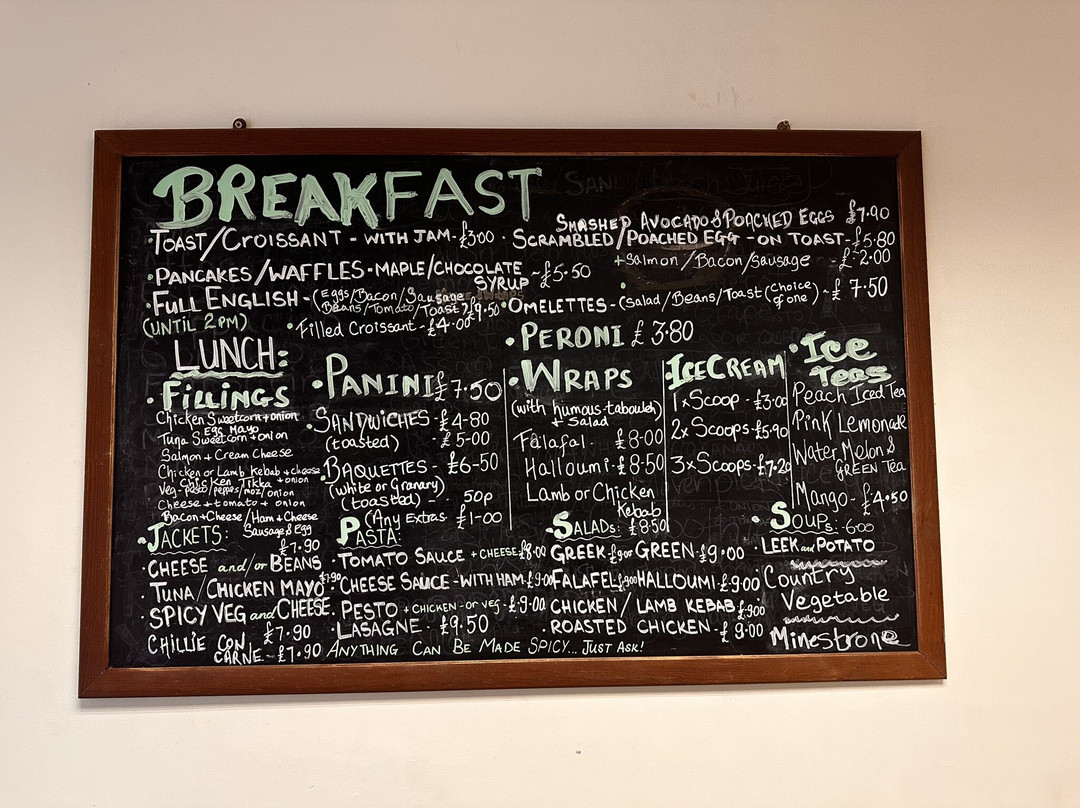 BREAKFAST
SMASHED AVOCADO & POACHED EGGS £7.90
• TOAST/CROISSANT - WITH JAM - £3.00
• SCRAMBLED/POACHED EGG - ON TOAST - £5.80
+ Salmon/Bacon/Sausage - £2.00
• PANCAKES/WAFFLES • MAPLE/CHOCOLATE SYRUP - £5.50
• FULL ENGLISH - (Eggs/Bacon/Sausage
Beans/Tomato/Toast) £9.50
(UNTIL 2PM)
• OMELETTES - (Salad/Beans/Toast (Choice of one) - £7.50
• Filled Croissant - £4.00
• PERONI £3.80
LUNCH:
• FILLINGS
Chicken Sweetcorn + onion
Egg Mayo
Tuna Sweetcorn + onion
Salmon + Cream Cheese
Chicken or Lamb Kebab + cheese
Chicken Tikka + onion
Veg - pesto/peppers/moz/onion
Cheese + tomato + onion
Bacon + Cheese / Ham + Cheese
Sausage & Egg
• PANINI £7.50
• SANDWICHES - £4-80
(toasted) - £5-00
• BAQUETTES - £6-50
(white or Granary)
(toasted) - 50p
(Any Extras - £1-00
• WRAPS
(with humous - tabouleh)
+ Salad
Falafal - £8-00
Halloumi - £8-50
Lamb or Chicken
Kebab
£8.50
ICE CREAM
1x Scoop - £3.00
2x Scoops - £5.90
3x Scoops - £7.20
• ICE TEAS
Peach Iced Tea
Pink Lemonade
Water Melon &
GREEN Tea
Mango - £4.50
• JACKETS:
£7.90
• CHEESE and/or BEANS
• TUNA/CHICKEN MAYO £7.90
• SPICY VEG and CHEESE
£7.90
CHILLIE CON
CARNE - £7.90
• PASTA:
• TOMATO SAUCE + CHEESE £8.00
• CHEESE SAUCE - WITH HAM - £9.00
• PESTO + CHICKEN - or veg - £9.00
• LASAGNE - £9.50
• SALADS:
GREEK - £9.00 GREEN - £9.00
FALAFEL £9.00 HALLOUMI - £9.00
CHICKEN/LAMB KEBAB £9.00
ROASTED CHICKEN - £9.00
• SOUPS: - 6.00
• LEEK and POTATO
Country
Vegetable
Minestrone
ANYTHING CAN BE MADE SPICY... JUST ASK!